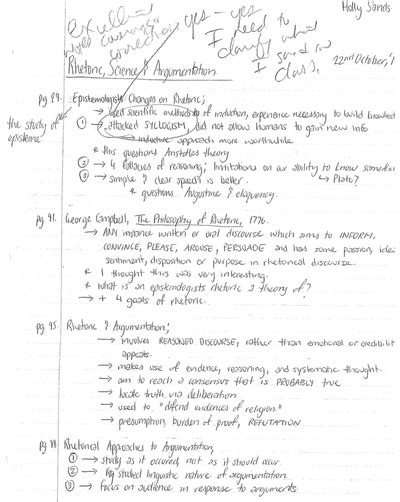 Holly Sands
excellent
yes - yes
I need to
clarify what
I said in
class.
22nd October,
Rhetoric, Science & Argumentation
pg 89. Epistemologists Changes on Rhetoric;
→ used scientific methods of induction, experience necessary to build
① → attacked SYLLOGISM, did not allow humans to gain new info
the study of
episteme
→ inductive approach more worthwhile
* this questions Aristotles theory
② → 4 fallacies of reasoning; limitations on our ability to know
③ → simple & clear speech is better.
↳ Plato?
* questions Augustine & eloquency.
pg 91. George Campbell, The Philosophy of Rhetoric, 1776.
→ ANY instance written or oral discourse which aims to INFORM,
CONVINCE, PLEASE, AROUSE, PERSUADE and has some passion, idea
sentiment, disposition or purpose in rhetorical discourse.
* I thought this was very interesting.
* What is an epistemologists rhetoric a theory of?
→ + 4 goals of rhetoric.
pg 95. Rhetoric & Argumentation;
→ involves REASONED DISCOURSE, rather than emotional or credibility
appeals.
→ makes use of evidence, reasoning, and systematic thought.
→ aim to reach a consensus that is PROBABLY true
→ locate truth via deliberation
→ used to "defend evidences of religion."
→ presumption, burden of proof, REFUTATION
Rhetorical Approaches to Argumentation;
① → study as it occurred, not as it should occur.
② → studied linguistic nature of argumentation.
③ → focus on audience in response to arguments.